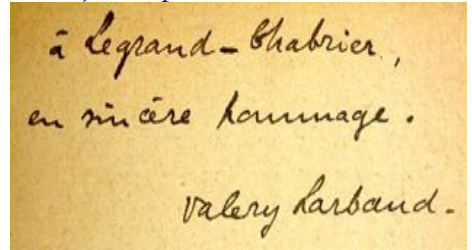 à Legrand-Chabrier,
en sincère hommage.
Valery Larbaud.